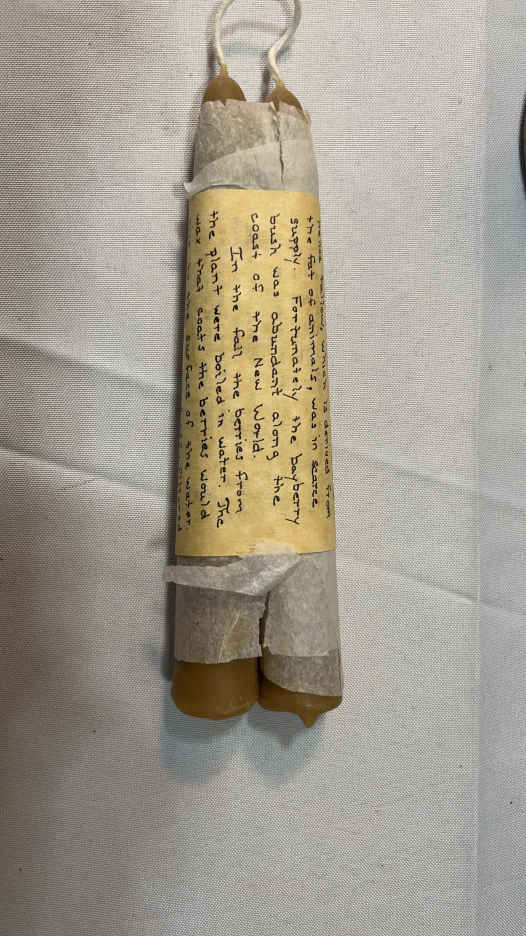 which is derived from
the fat of animals, was in scarce
supply. Fortunately the bayberry
bush was abundant along the
coast of the New World.
In the fall the berries from
the plant were boiled in water. The
wax that coats the berries would
the surface of the water.